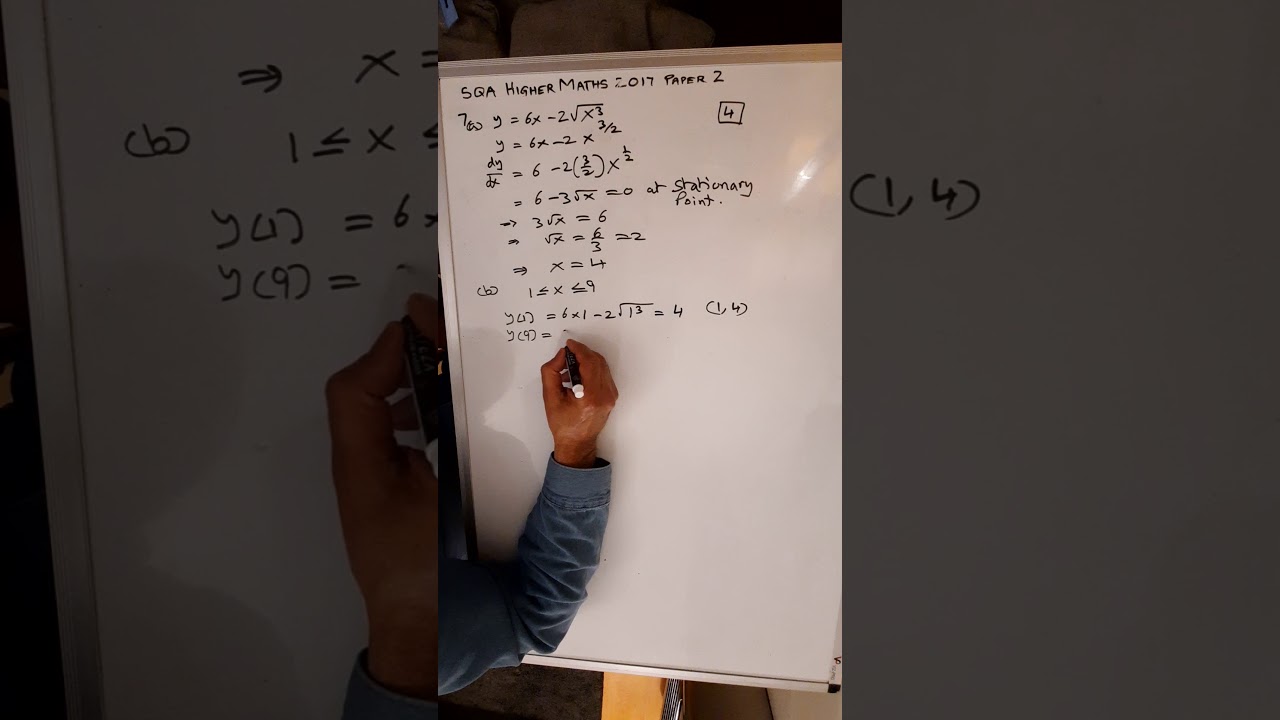 SQA HIGHER MATHS 2017 PAPER 2
7(a) y = 6x - 2√x³ [4]
y = 6x - 2 x^(3/2)
dy/dx = 6 - 2(3/2) x^(1/2)
= 6 - 3√x = 0 at stationary point.
⇒ 3√x = 6
⇒ √x = 6/3 = 2
⇒ x = 4
(b) 1 ≤ x ≤ 9
y(1) = 6 x 1 - 2√1³ = 4 (1, 4)
y(9) =